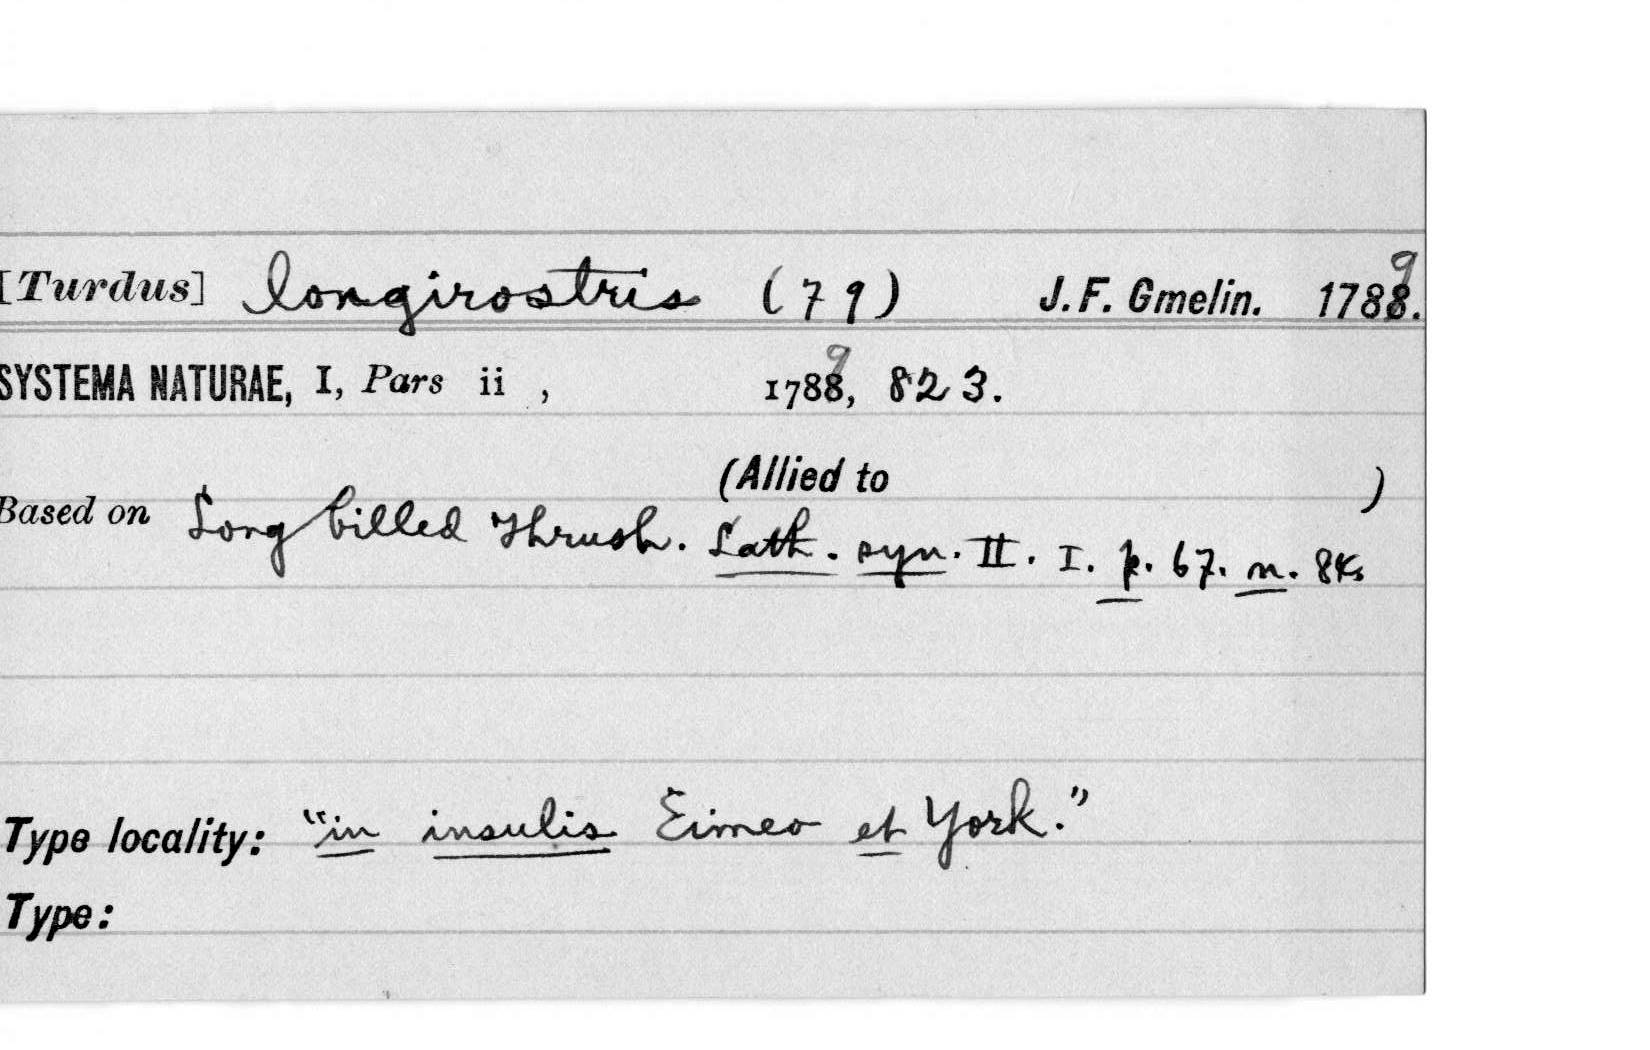 [Turdus] longirostris (79) J. F. Gmelin. 1788. 9
SYSTEMA NATURAE, I, Pars ii , 1788, 9 823.
(Allied to )
Based on Long billed Thrush. Lath. syn. II. I. p. 67. n.
Type locality: "in insulis Eimeo et York."
Type: